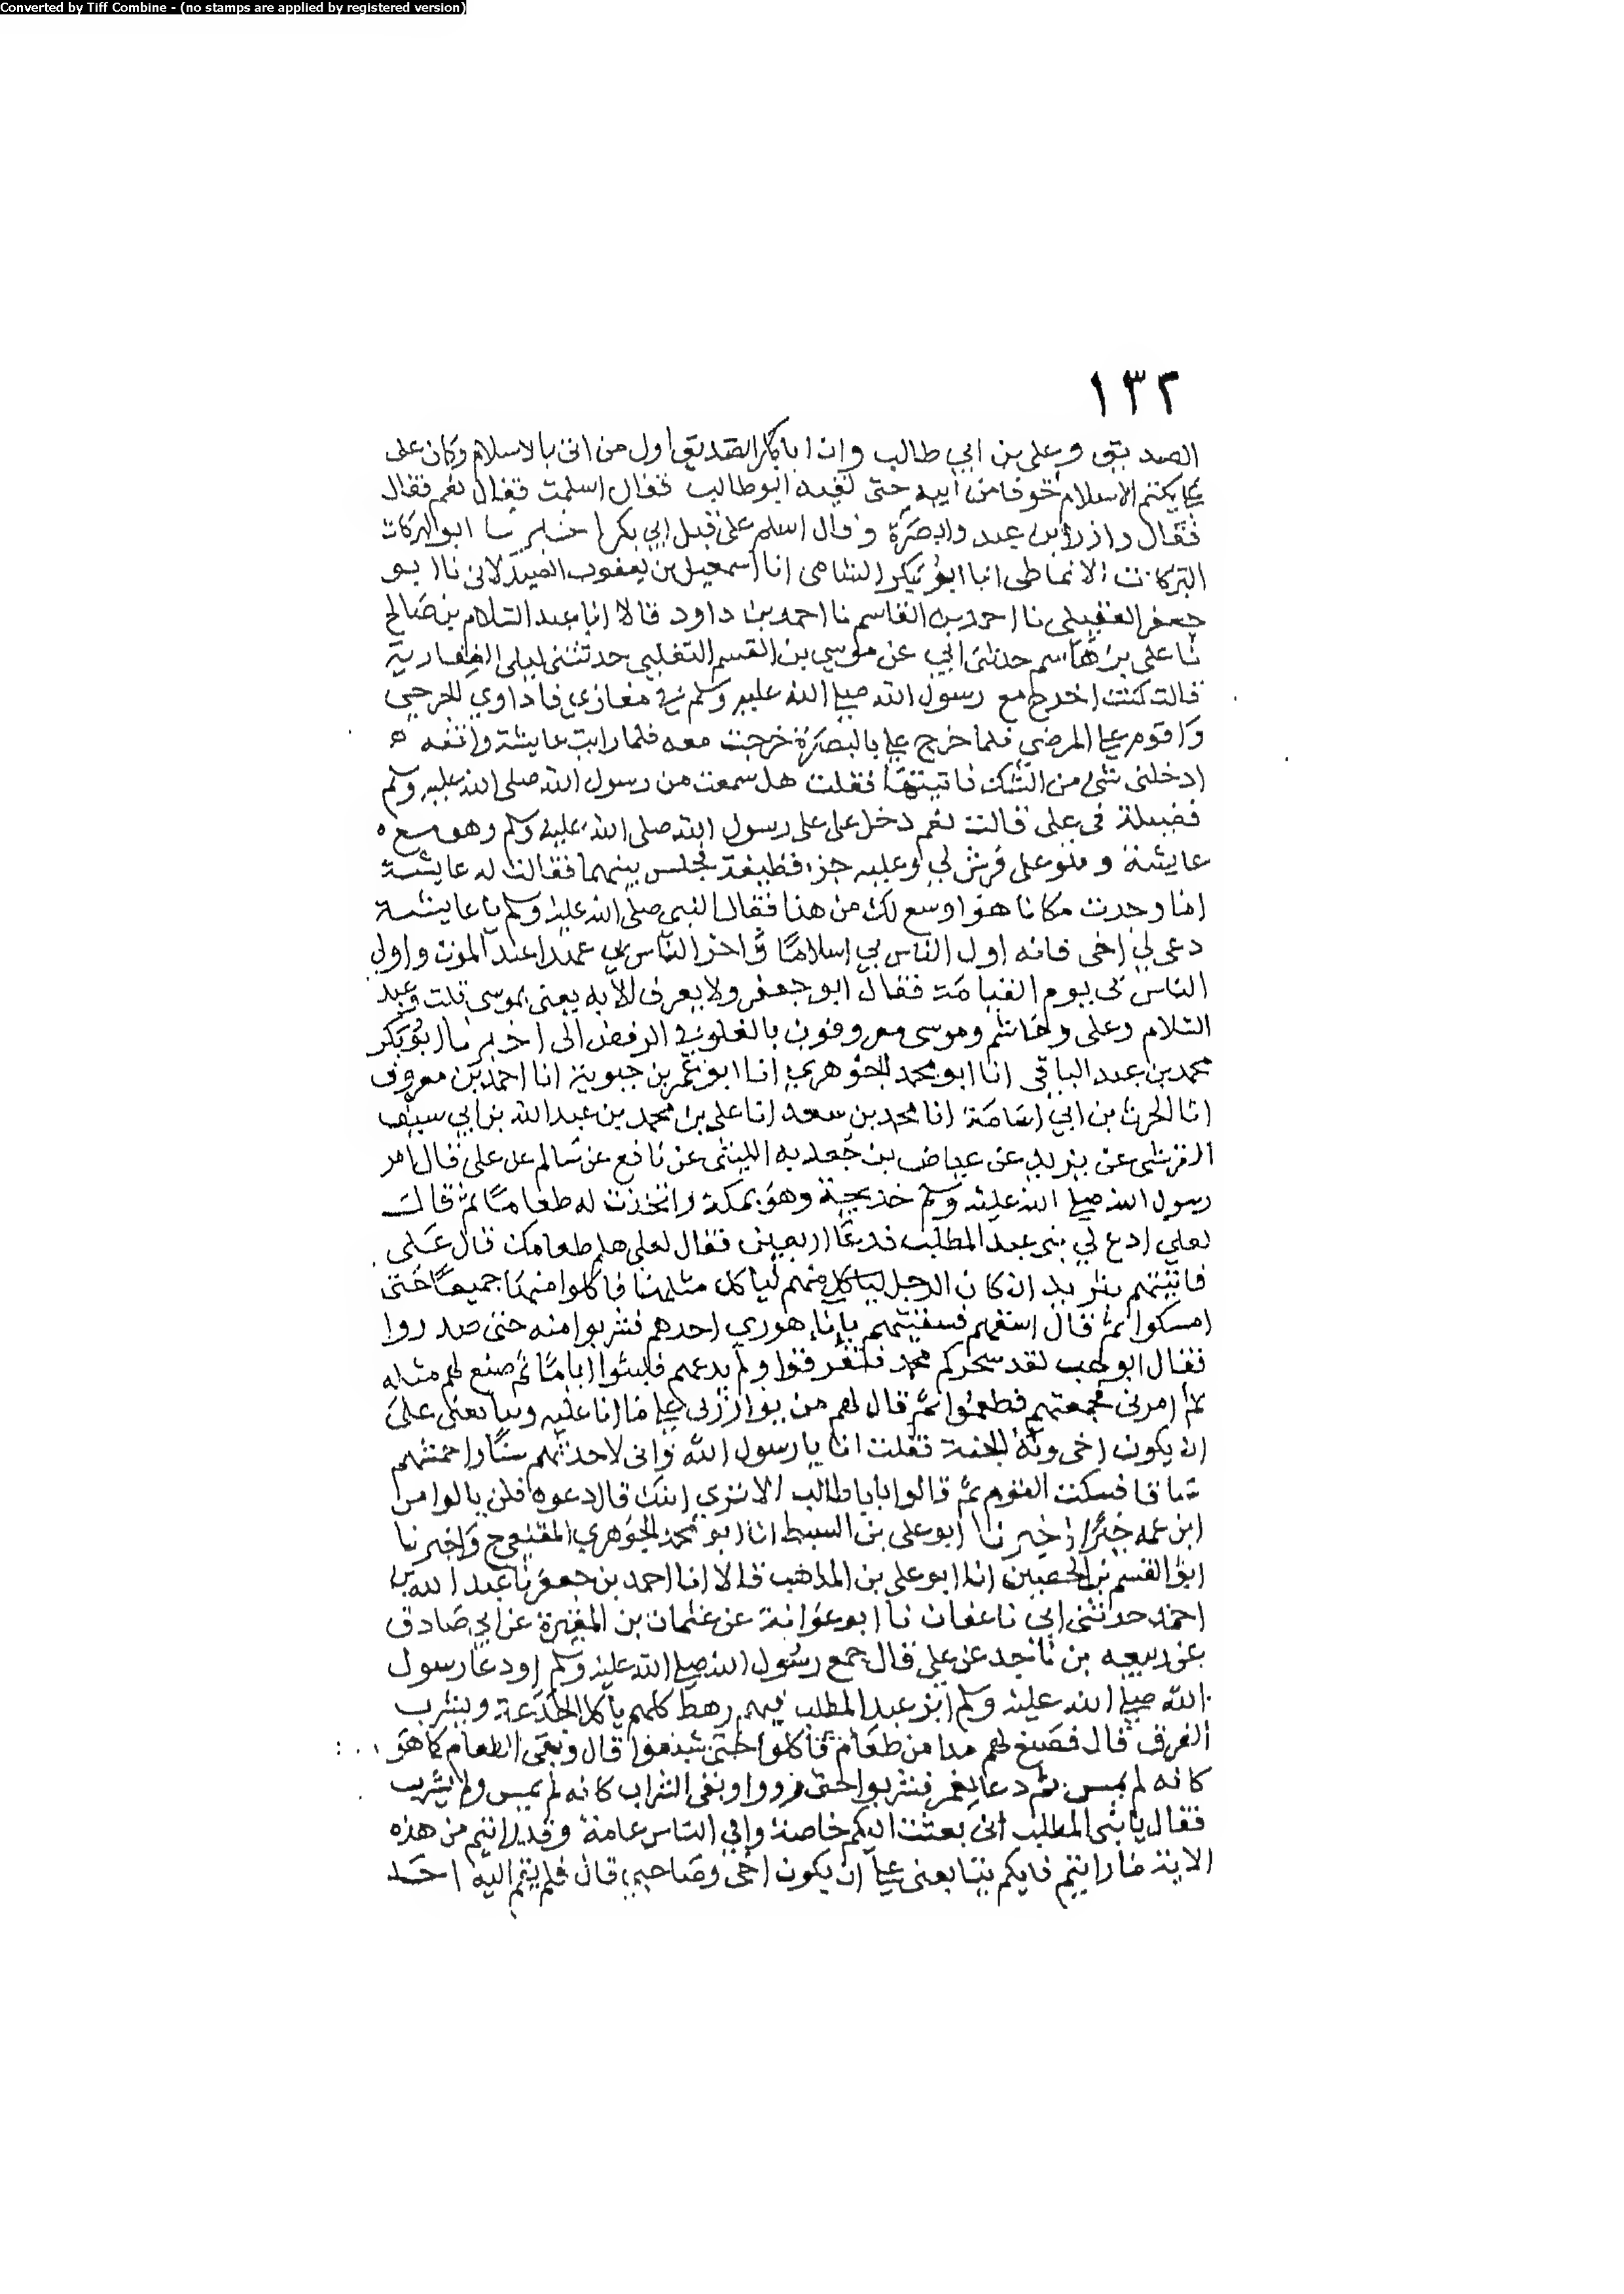 Converted by Tiff Combine - (no stamps are applied by registered version)
١٣٢
الصديق وعلي بن ابي طالب وان ابا بكر الصديق اول من اتى بالاسلام وكان على
علي يكتم الاسلام خوفا من ابيه حتى لقيه ابو طالب فقال اسلمت فقال نعم فقال
فقال وازر ابن عمك وانصره وقال اسلم علي قبل ابي بكر اخبرنا ابو البركات
البركات الانماطي انبا ابو بكر الشامي انا اسمعيل بن يعقوب الصيدلاني نا ابو
جعفر العقيلي نا احمد بن القاسم نا احمد بن داود قالا انا عبد السلام بن صالح
نا علي بن هاشم حدثني ابي عن موسى بن القسم التغلبي حدثتني ليلى الغفارية
قالت كنت اخرج مع رسول الله صلى الله عليه وسلم في مغازيه فاداوي الجرحى
واقوم على المرضى فلما خرج علي بالبصرة خرجت معه فلما رايت عايشة واقفه
ادخلني شئ من الشك فاتيتها فقلت هل سمعت من رسول الله صلى الله عليه وسلم
فضيلة في علي قالت نعم دخل علي على رسول الله صلى الله عليه وسلم وهو مع
عايشة وهو على فرش لي وعليه جرد قطيفة فجلس بينهما فقالت له عايشة
اما وجدت مكانا هو اوسع لك من هذا فقال النبي صلى الله عليه وسلم يا عايشة
دعي لي اخي فانه اول الناس بي اسلاما واخر الناس بي عهدا عند الموت واول
الناس لي يوم القيامة فقال ابو جعفر ولا يعرف الا به يعني بموسى قلت وعبد
السلام وعلي وهاشم وموسى معروفون بالغلو في الرفض الى اخبرنا ابو بكر
محمد بن عبد الباقي انا ابو محمد الجوهري انا ابو عمر بن حيوية انا احمد بن معروف
انا الحرث بن ابي اسامة انا محمد بن سعد انا علي بن محمد بن عبد الله بن ابي سيف
القرشي عن يزيد عن عياض بن جعدبه الليثي عن نافع عن سالم عن علي قال امر
رسول الله صلى الله عليه وسلم خديجة وهو بمكة واتخذت له طعاما ثم قالت
لعلي ادع لي بني عبد المطلب فدعا اربعين فقال لعلي هلم طعامك قال علي
فاتيتهم بثريد ان كان الرجل لياكل منهم لياكل مثلها فاكلوا منها جميعا حتى
امسكوا ثم قال اسقهم فسقيتهم باناء هو ري احدهم فشربوا منه حتى صدروا
فقال ابو لهب لقد سحركم محمد فتفرقوا ولم يدعهم فلبثوا اياما ثم صنع لهم مثله
ثم امرني فجمعتهم فطعموا ثم قال لهم من يوازرني على ما انا عليه ويبايعني على
ان يكون اخي وله الجنة فقلت انا يا رسول الله واني لاحدثهم سنا واحمشهم
ساقا فسكت القوم ثم قالوا يابا طالب الا ترى ابنك قال دعوه فلن يالوا من
ابن عمه خيرا اخبرنا ابو علي بن السبط انا ابو محمد الجوهري ح واخبرنا
ابو القسم بن الحصين انا ابو علي بن المذهب قالا انا احمد بن جعفر نا عبد الله بن
احمد حدثني ابي نا عفان نا ابو عوانة عن عثمان بن المغيرة عن ابي صادق
عن ربيعه بن ناجد عن علي قال جمع رسول الله صلى الله عليه وسلم او دعا رسول
الله صلى الله عليه وسلم بني عبد المطلب فيهم رهط كلهم ياكل الجذعة ويشرب
الفرق قال فصنع لهم مدا من طعام فاكلوا حتى شبعوا قال وبقى الطعام كما هو
كانه لم يمس ثم دعا بغمر فشربوا حتى رووا وبقى الشراب كانه لم يمس ولم يشرب
فقال يا بني المطلب اني بعثت اليكم خاصة والى الناس عامة وقد رايتم من هذه
الاية ما رايتم فايكم يبايعني على ان يكون اخي وصاحبي قال فلم يقم اليه احد